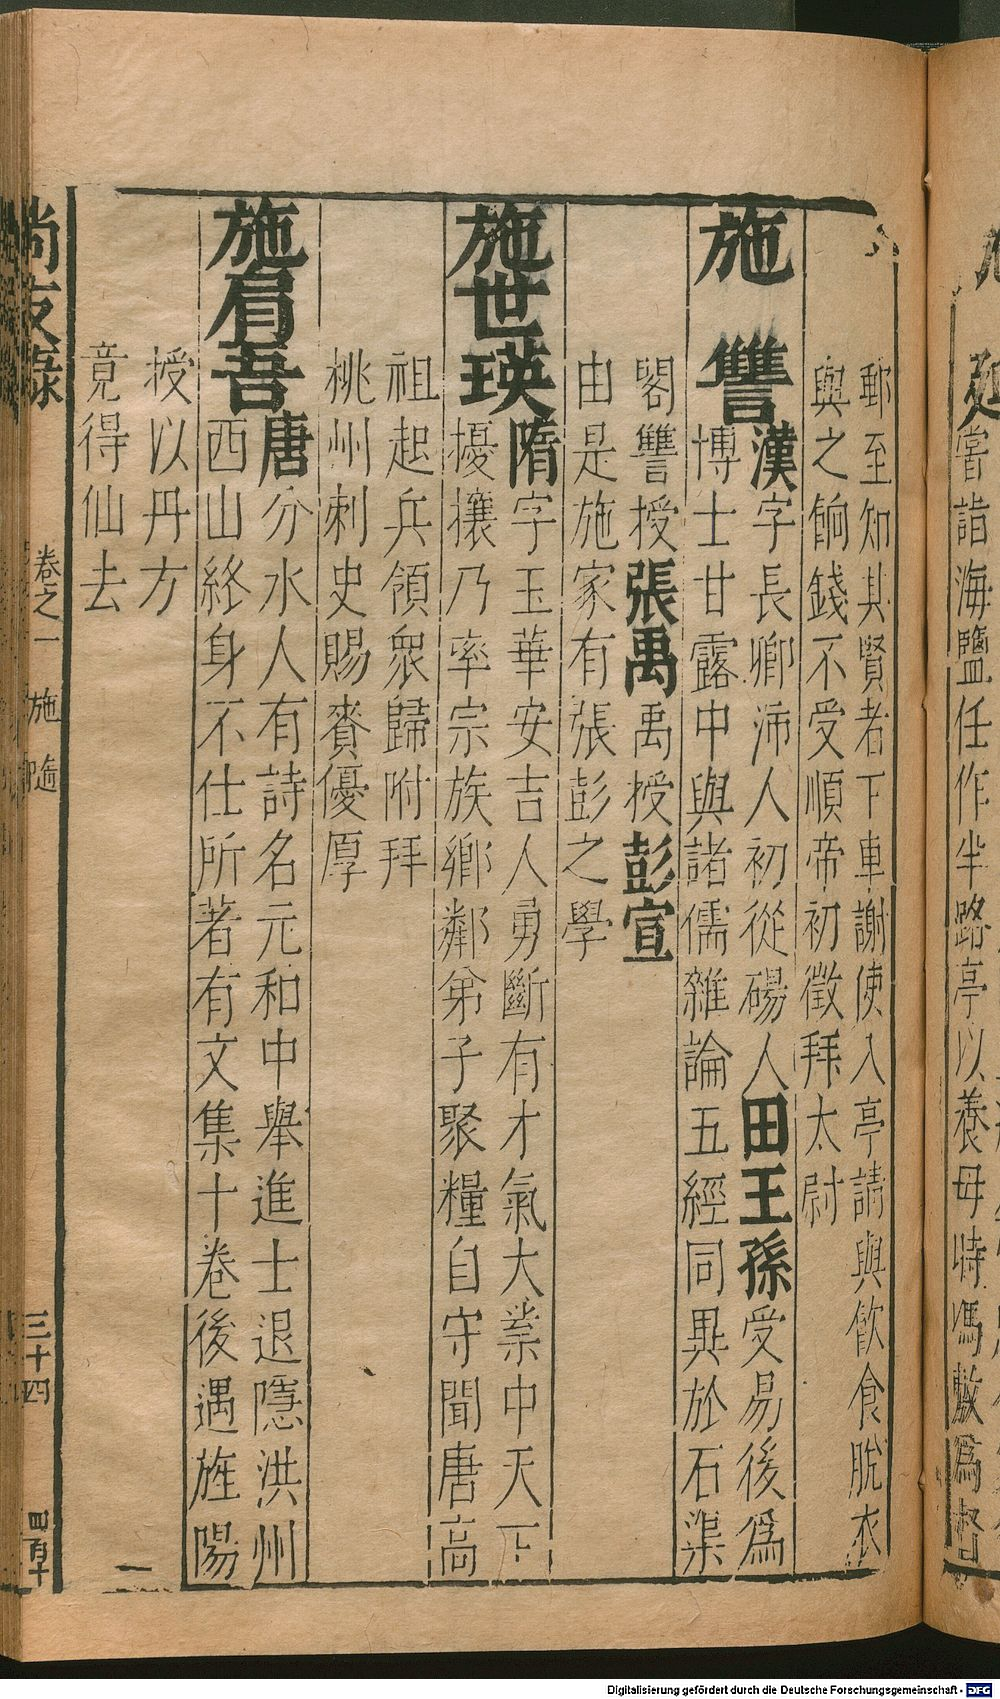 嘗詣海鹽任作半路亭以養母時馮敷爲督
郵至知其賢者下車謝使入亭請與飲食脫衣
與之餉錢不受順帝初徵拜太尉
施讐漢字長卿沛人初從碭人田王孫受易後爲
博士甘露中與諸儒雜論五經同異於石渠
閣讐授張禹禹授彭宣
由是施家有張彭之學
施世瑛隋字玉華安吉人勇斷有才氣大業中天下
擾攘乃率宗族鄉鄰弟子聚糧自守聞唐高
祖起兵領衆歸附拜
桃州刺史賜賚優厚
施肩吾唐分水人有詩名元和中舉進士退隱洪州
西山終身不仕所著有文集十卷後遇旌陽
授以丹方
竟得仙去
尚友錄
卷之一 施 隨
三十四
四百十
Digitalisierung gefördert durch die Deutsche Forschungsgemeinschaft - DFG